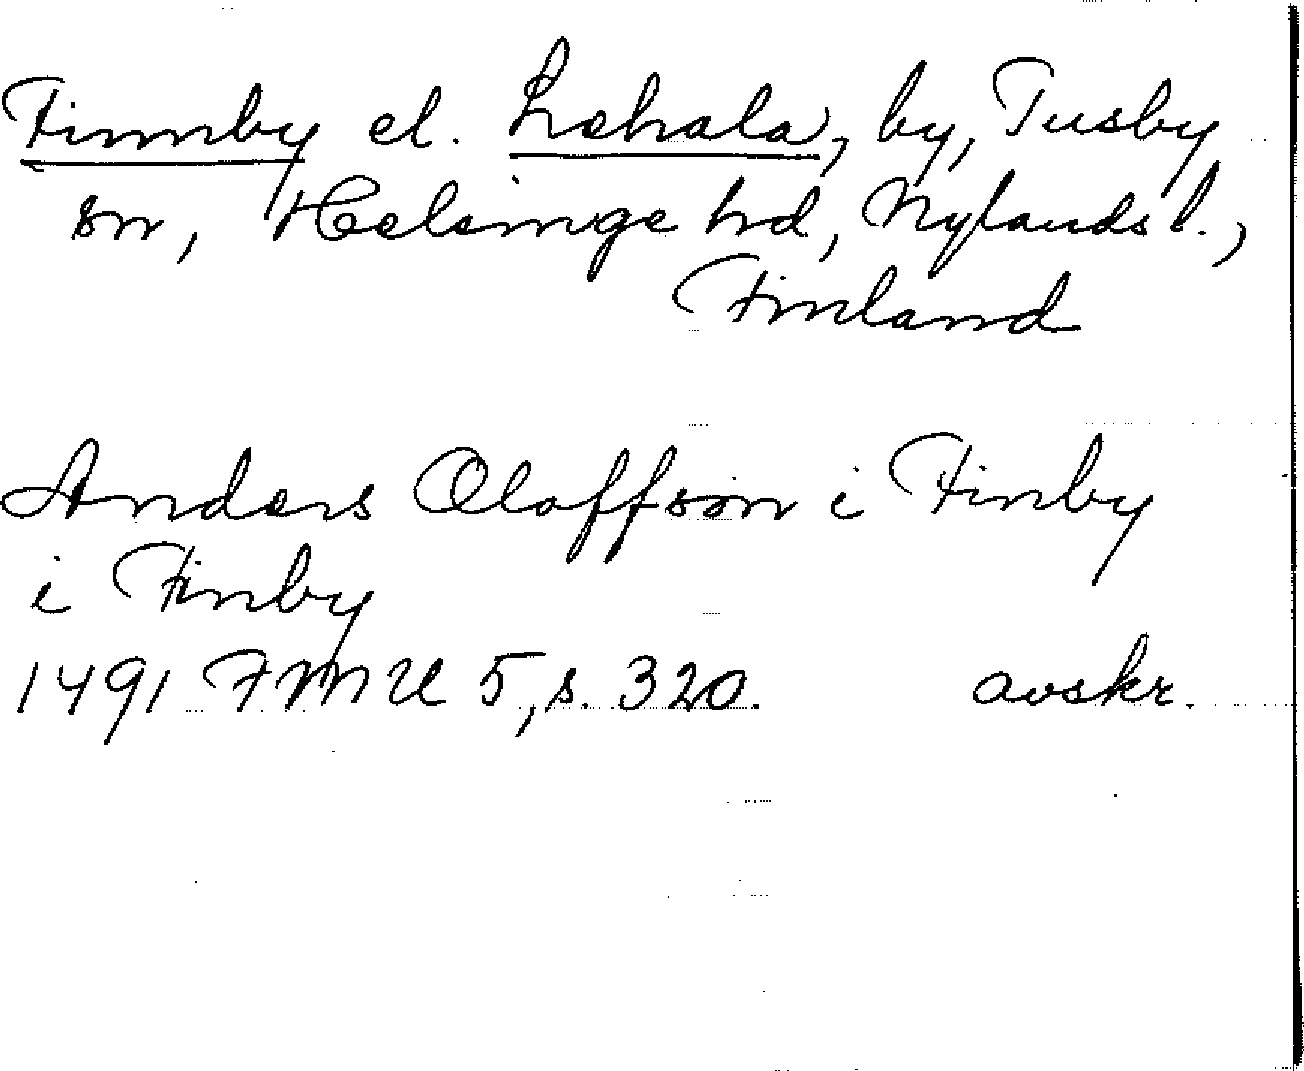 Finnby el. Lahala, by, Tusby
sn, Helsinge hd, Nylands l.,
Finland
Anders Olaffson i Finby
i Finby
1491 FMU 5, s. 320. avskr.